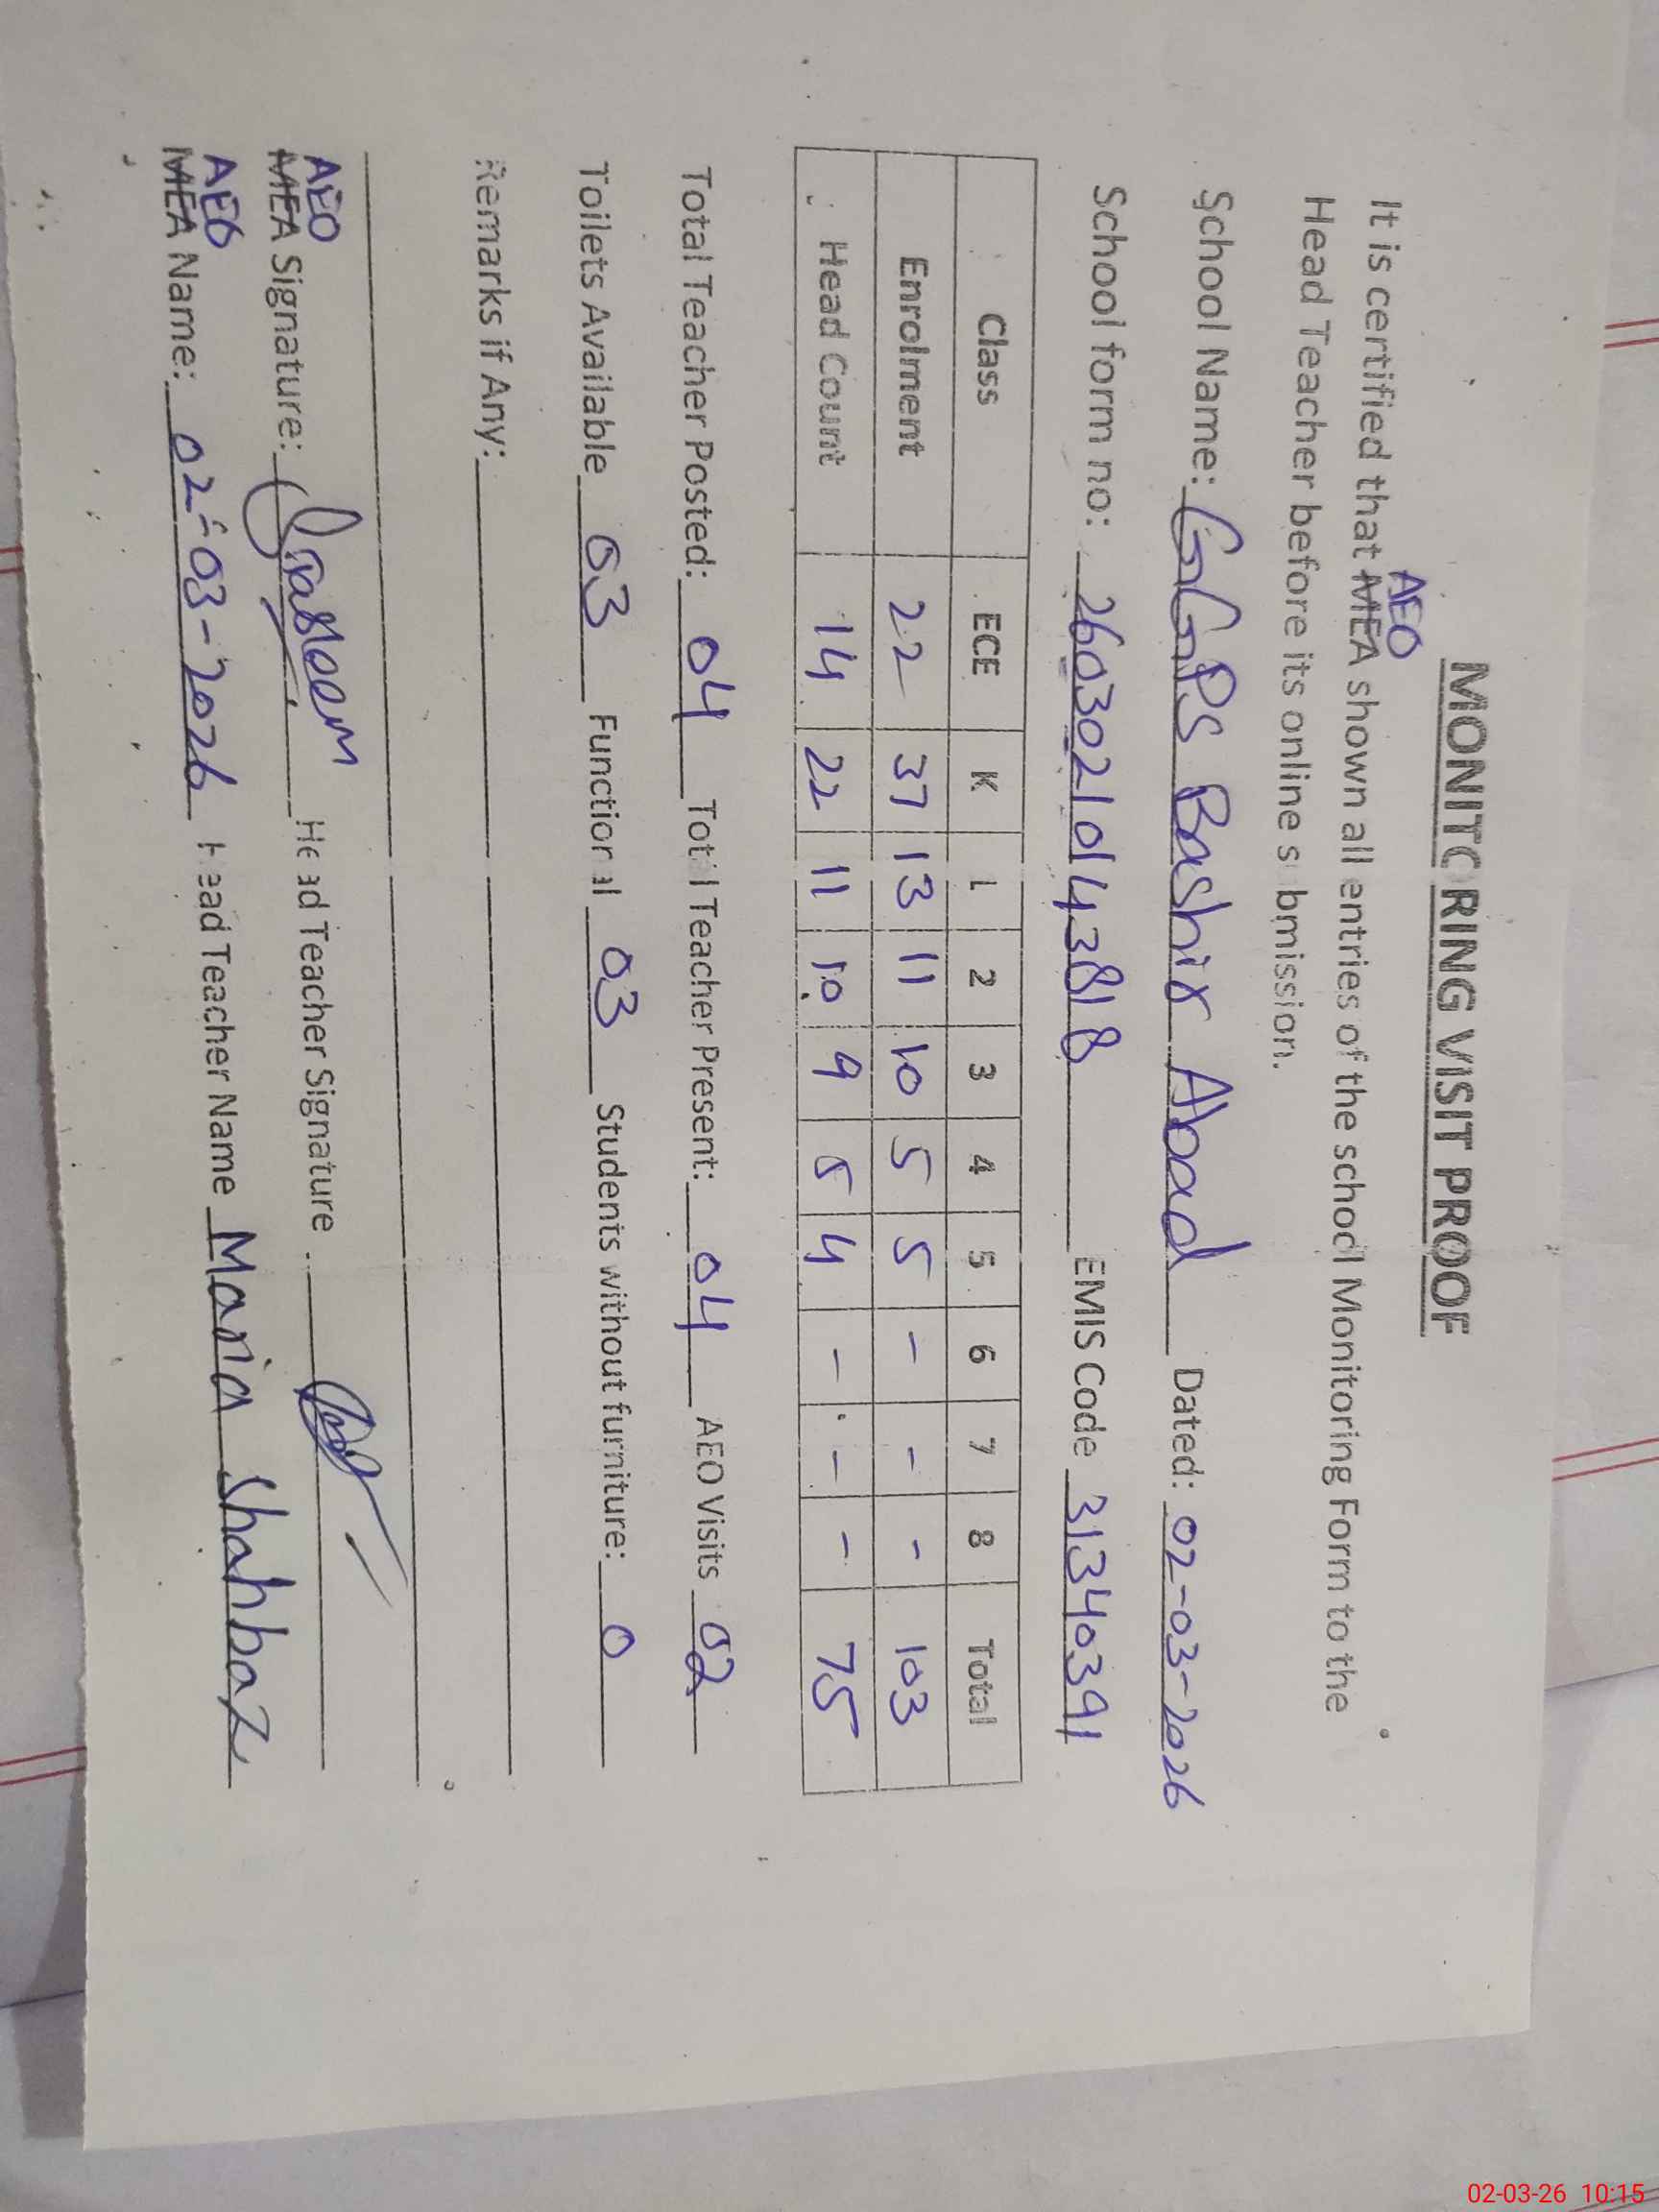 MONITORING VISIT PROOF
AEO
It is certified that MEA shown all entries of the school Monitoring Form to the
Head Teacher before its online submission.
School Name: GGPS Bashir Abad Dated: 02-03-2026
School form no: 26030210143818 EMIS Code 31340391
Class ECE K 1 2 3 4 5 6 7 8 Total
Enrolment 22 37 13 11 10 5 5 - - - 103
Head Count 14 22 11 10 9 5 4 - - - 75
Total Teacher Posted: 04 Total Teacher Present: 04 AEO Visits 02
Toilets Available 03 Functional 03 Students without furniture: 0
Remarks if Any:
AEO
MEA Signature: Head Teacher Signature
AEO
MEA Name: 02-03-2026 Head Teacher Name Maria Shahbaz
02-03-26 10:15